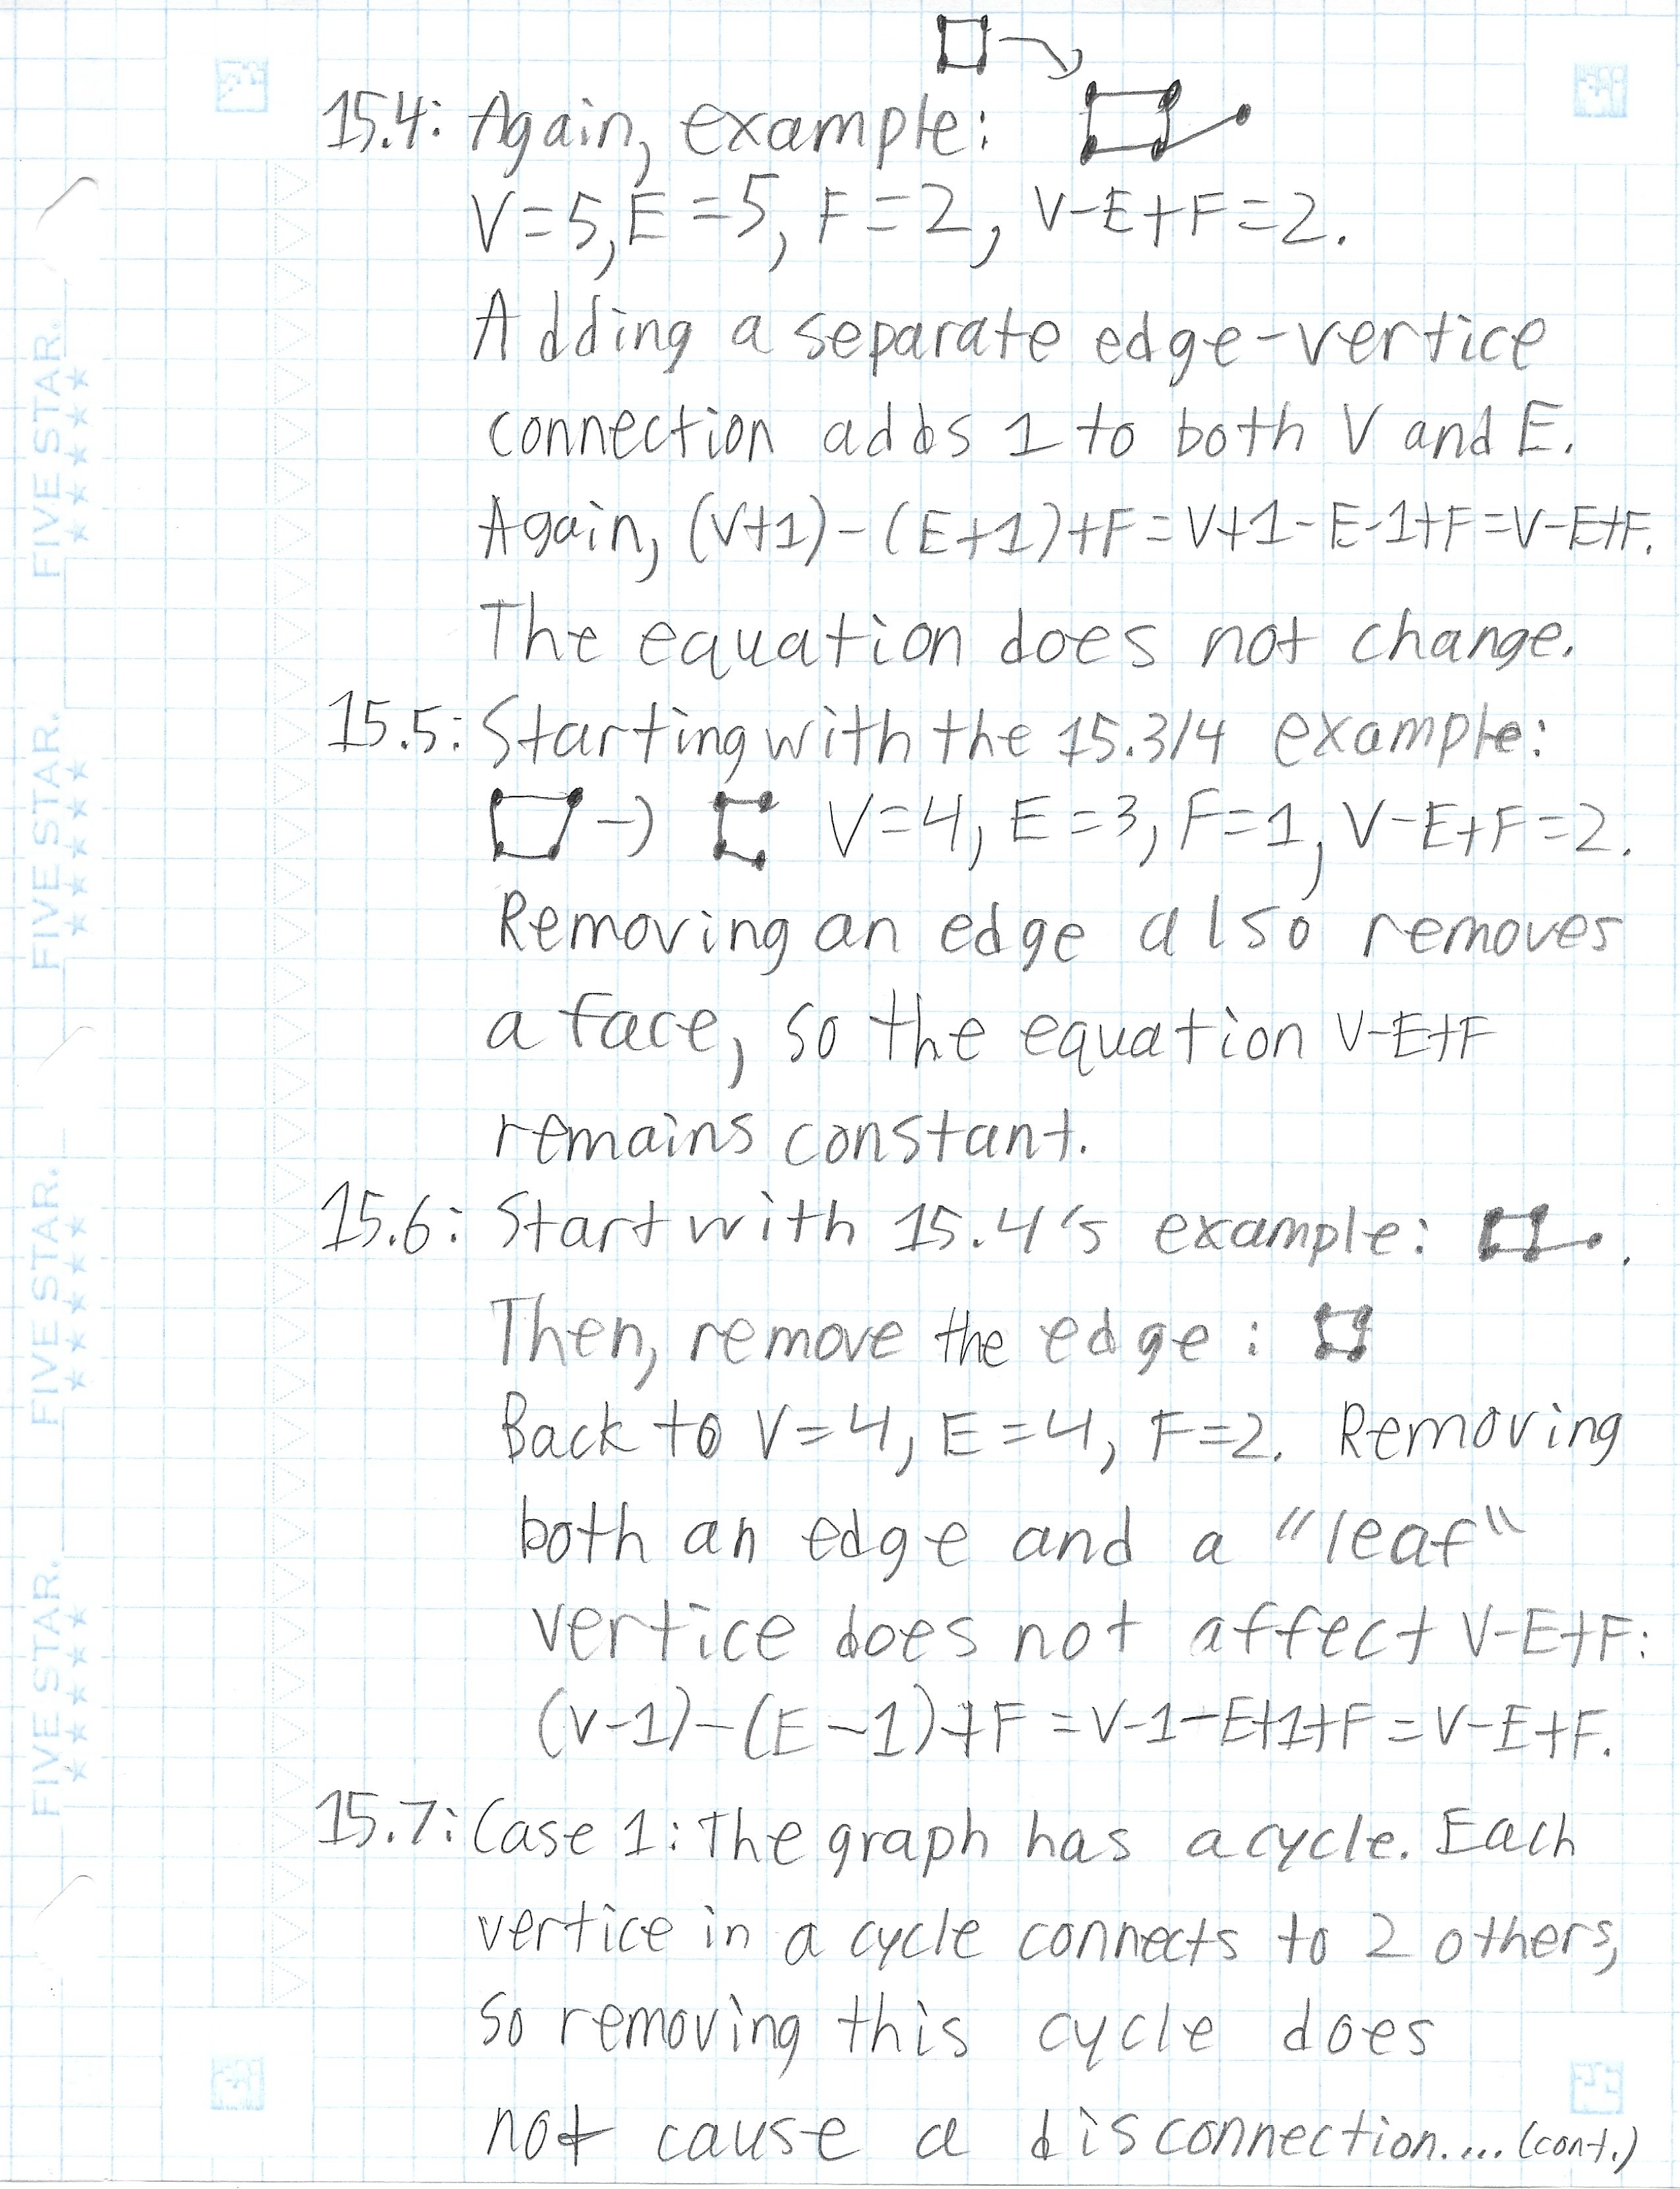 15.4: Again, example:
V=5, E=5, F=2, V-E+F=2.
Adding a separate edge-vertice
connection adds 1 to both V and E.
Again, (V+1)-(E+1)+F=V+1-E-1+F=V-E+F.
The equation does not change.
15.5: Starting with the 15.3/4 example:
→ V=4, E=3, F=1, V-E+F=2.
Removing an edge also removes
a face, so the equation V-E+F
remains constant.
15.6: Start with 15.4's example: .
Then, remove the edge:
Back to V=4, E=4, F=2. Removing
both an edge and a "leaf"
vertice does not affect V-E+F:
(V-1)-(E-1)+F=V-1-E+1+F=V-E+F.
15.7: Case 1: The graph has a cycle. Each
vertice in a cycle connects to 2 others,
so removing this cycle does
not cause a disconnection.... (cont.)
FIVE STAR.
FIVE STAR.
FIVE STAR.
FIVE STAR.